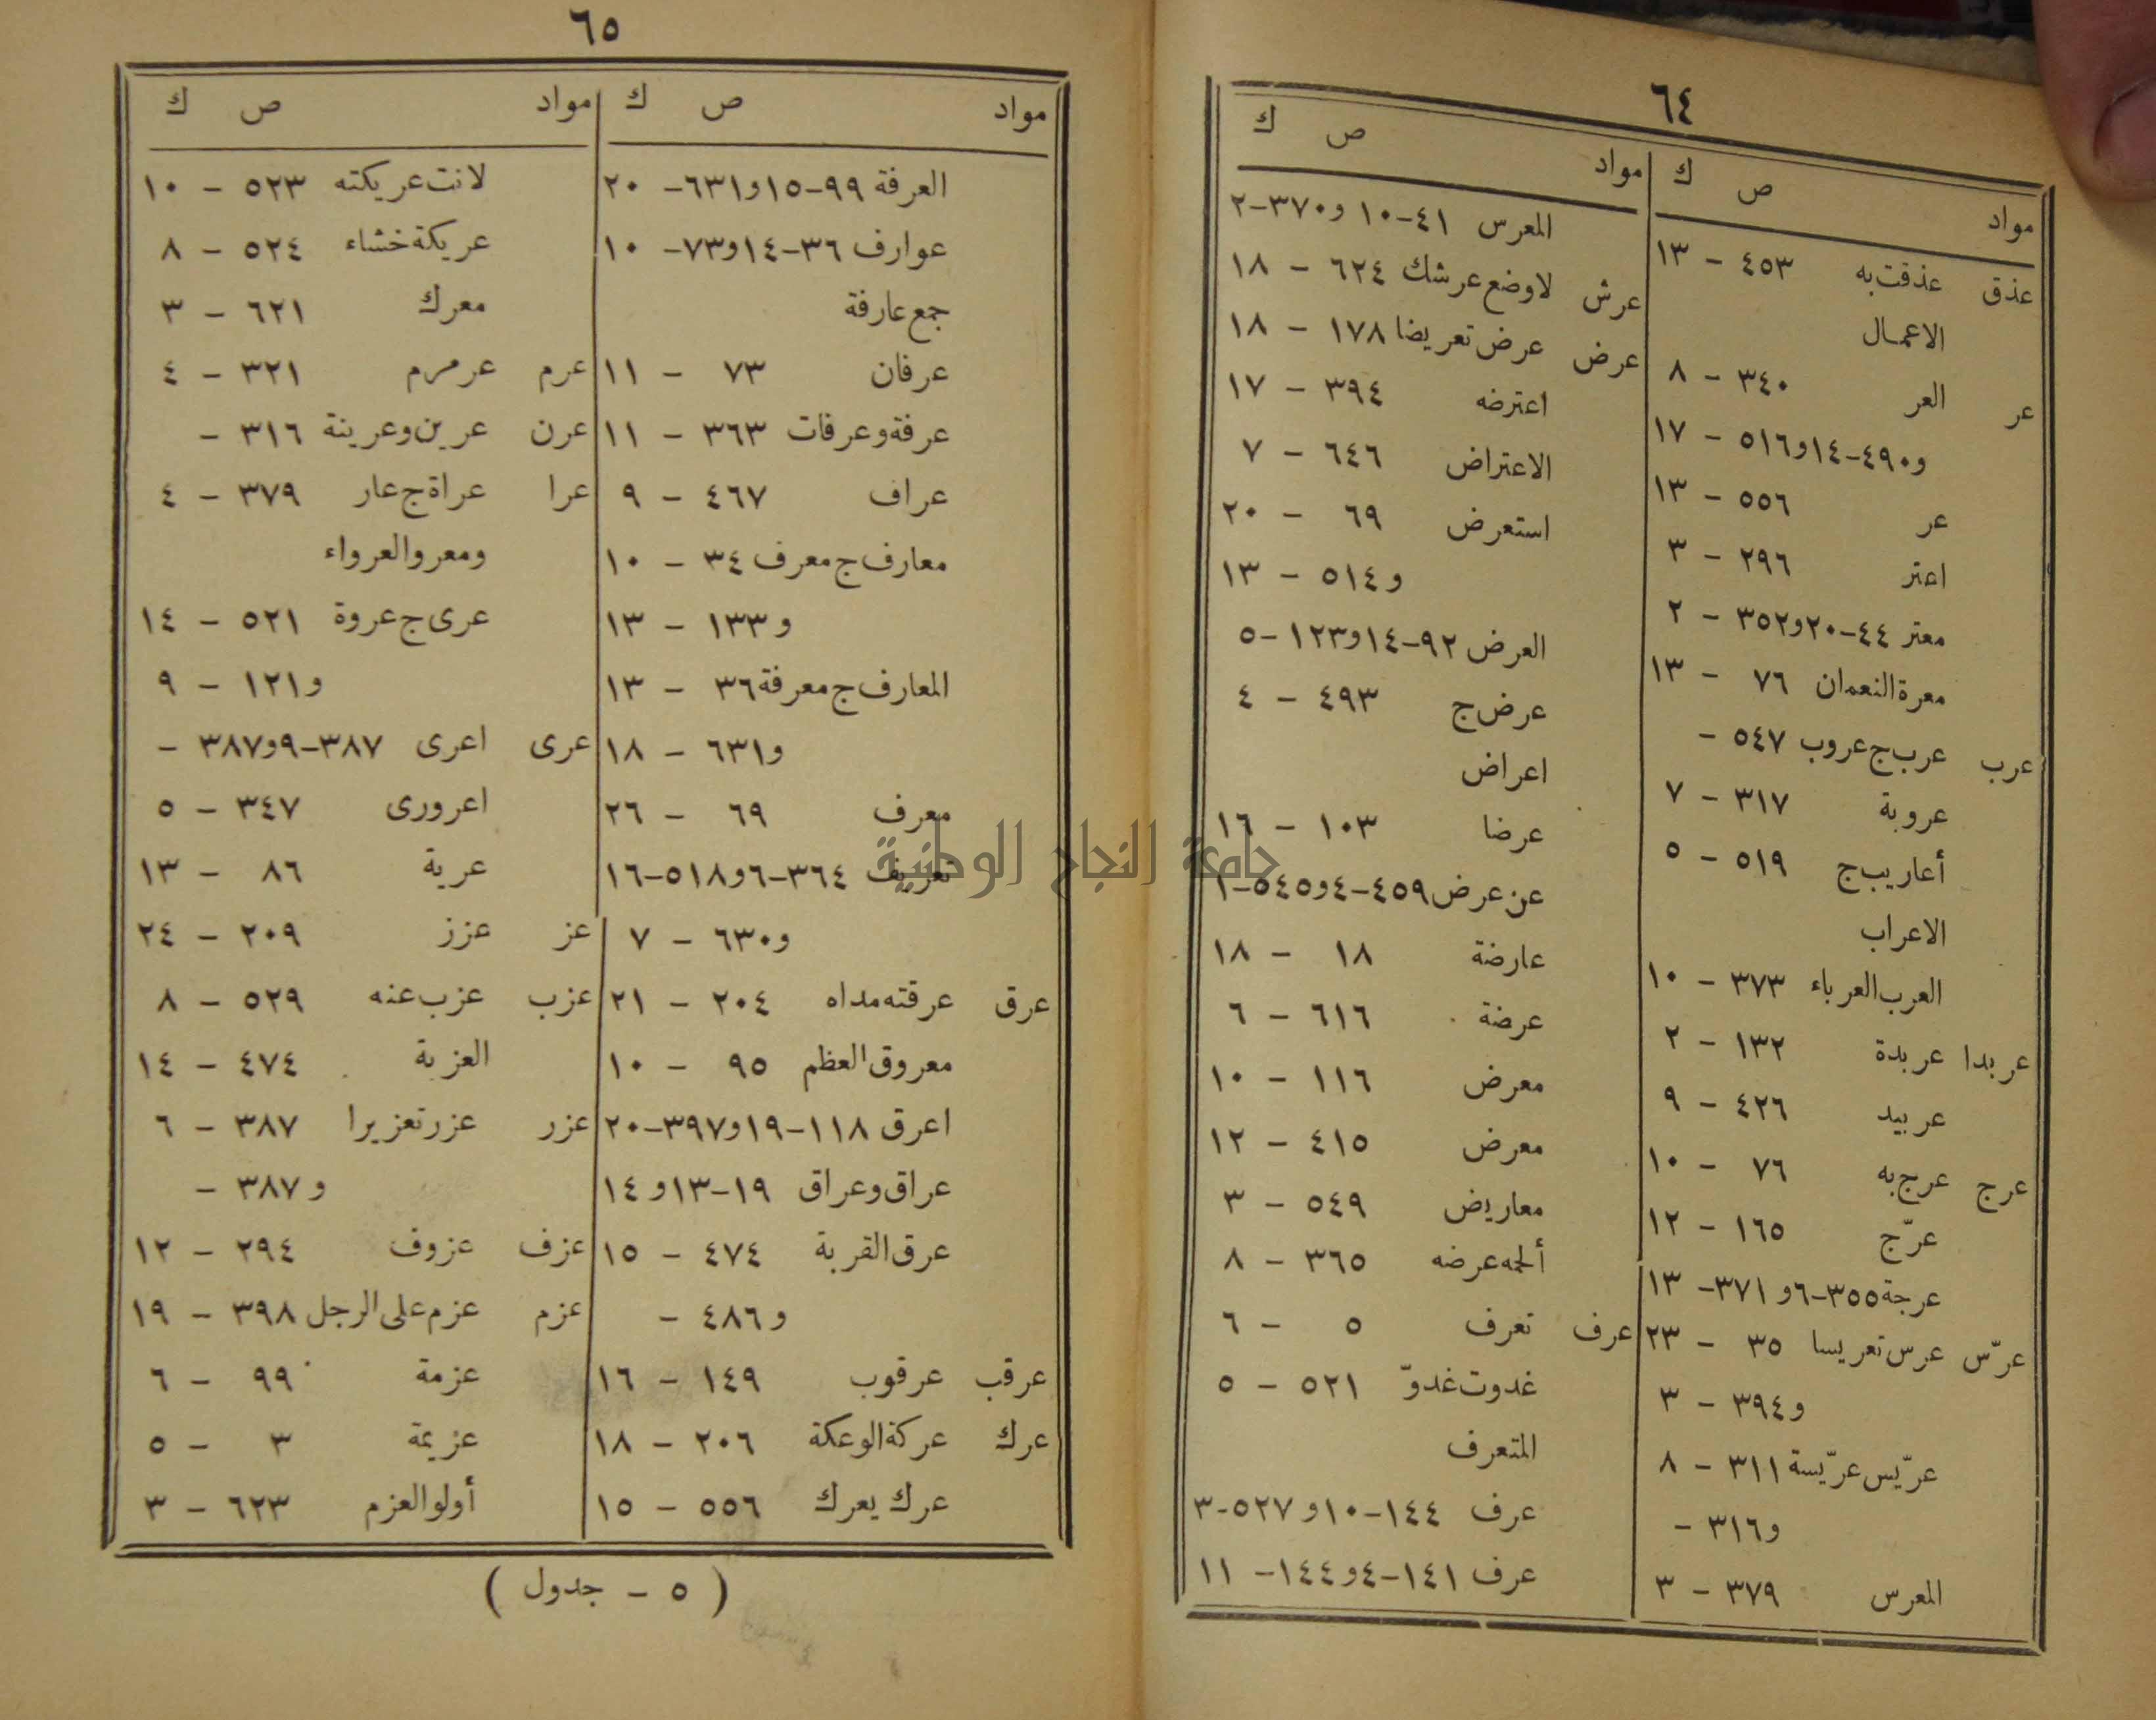 ٦٤
مواد ص ك
عذق عذقت به ٤٥٣ - ١٣
الاعمال
عر العر ٣٤٠ - ٨
و٤٩٠-١٤و٥١٦ - ١٧
عر ٥٥٦ - ١٣
اعتر ٢٩٦ - ٣
معتر ٤٤-٢٠و٣٥٢ - ٢
معرة النعمان ٧٦ - ١٣
عرب عرب ج عروب ٥٤٧ -
عروبة ٣١٧ - ٧
أعاريب ج ٥١٩ - ٥
الاعراب
العرب العرباء ٣٧٣ - ١٠
عربدا عربدة ١٣٢ - ٢
عربيد ٤٢٦ - ٩
عرج عرج به ٧٦ - ١٠
عرّج ١٦٥ - ١٢
عرجة ٣٥٥-٦و٣٧١- ١٣
عرّس عرس تعريسا ٣٥ - ٢٣
و٣٩٤ - ٣
عرّيس عرّيسة ٣١١ - ٨
و٣١٦ -
المعرس ٣٧٩ - ٣
مواد ص ك
المعرس ٤١-١٠ و٣٧٠-٢
عرش لاوضع عرشك ٦٢٤ - ١٨
عرض عرض تعريضا ١٧٨ - ١٨
اعترضه ٣٩٤ - ١٧
الاعتراض ٦٤٦ - ٧
استعرض ٦٩ - ٢٠
و٥١٤ - ١٣
العرض ٩٢-١٤و١٢٣-٥
عرض ج ٤٩٣ - ٤
اعراض
عرضا ١٠٣ - ١٦
عن عرض ٤٥٩-٤و٥٤٥-١
عارضة ١٨ - ١٨
عرضة ٦١٦ - ٦
معرض ١١٦ - ١٠
معرض ٤١٥ - ١٢
معاريض ٥٤٩ - ٣
ألجمه عرضه ٣٦٥ - ٨
عرف تعرف ٥ - ٦
غدوت غدوّ ٥٢١ - ٥
المتعرف
عرف ١٤٤-١٠و٥٢٧-٣
عرف ١٤١-٤و١٤٤- ١١
٦٥
مواد ص ك
العرفة ٩٩-١٥و٦٣١- ٢٠
عوارف ٣٦-١٤و٧٣- ١٠
جمع عارفة
عرفان ٧٣ - ١١
عرفة وعرفات ٣٦٣ - ١١
عراف ٤٦٧ - ٩
معارف ج معرف ٣٤ - ١٠
و١٣٣ - ١٣
المعارف ج معرفة ٣٦ - ١٣
و٦٣١ - ١٨
معرف ٦٩ - ٢٦
تعريف ٣٦٤-٦و٥١٨-١٦
و٦٣٠ - ٧
عرق عرقته مداه ٢٠٤ - ٢١
معروق العظم ٩٥ - ١٠
اعرق ١١٨-١٩و٣٩٧-٢٠
عراق وعراق ١٩-١٣و١٤
عرق القربة ٤٧٤ - ١٥
و٤٨٦ -
عرقب عرقوب ١٤٩ - ١٦
عرك عركة الوعكة ٢٠٦ - ١٨
عرك يعرك ٥٥٦ - ١٥
مواد ص ك
لانت عريكته ٥٢٣ - ١٠
عريكة خشاء ٥٢٤ - ٨
معرك ٦٢١ - ٣
عرم عرمرم ٣٢١ - ٤
عرن عرين وعرينة ٣١٦ -
عرا عراة ج عار ٣٧٩ - ٤
ومعر والعرواء
عرى ج عروة ٥٢١ - ١٤
و١٢١ - ٩
عرى اعرى ٣٨٧-٩و٣٨٧ -
اعرورى ٣٤٧ - ٥
عرية ٨٦ - ١٣
عز عزز ٢٠٩ - ٢٤
عزب عزب عنه ٥٢٩ - ٨
العزبة ٤٧٤ - ١٤
عزر عزر تعزيرا ٣٨٧ - ٦
و٣٨٧ -
عزف عزوف ٢٩٤ - ١٢
عزم عزم على الرجل ٣٩٨ - ١٩
عزمة ٩٩ - ٦
عزيمة ٣ - ٥
أولو العزم ٦٢٣ - ٣
( ٥ - جدول )
جامعة النجاح الوطنية